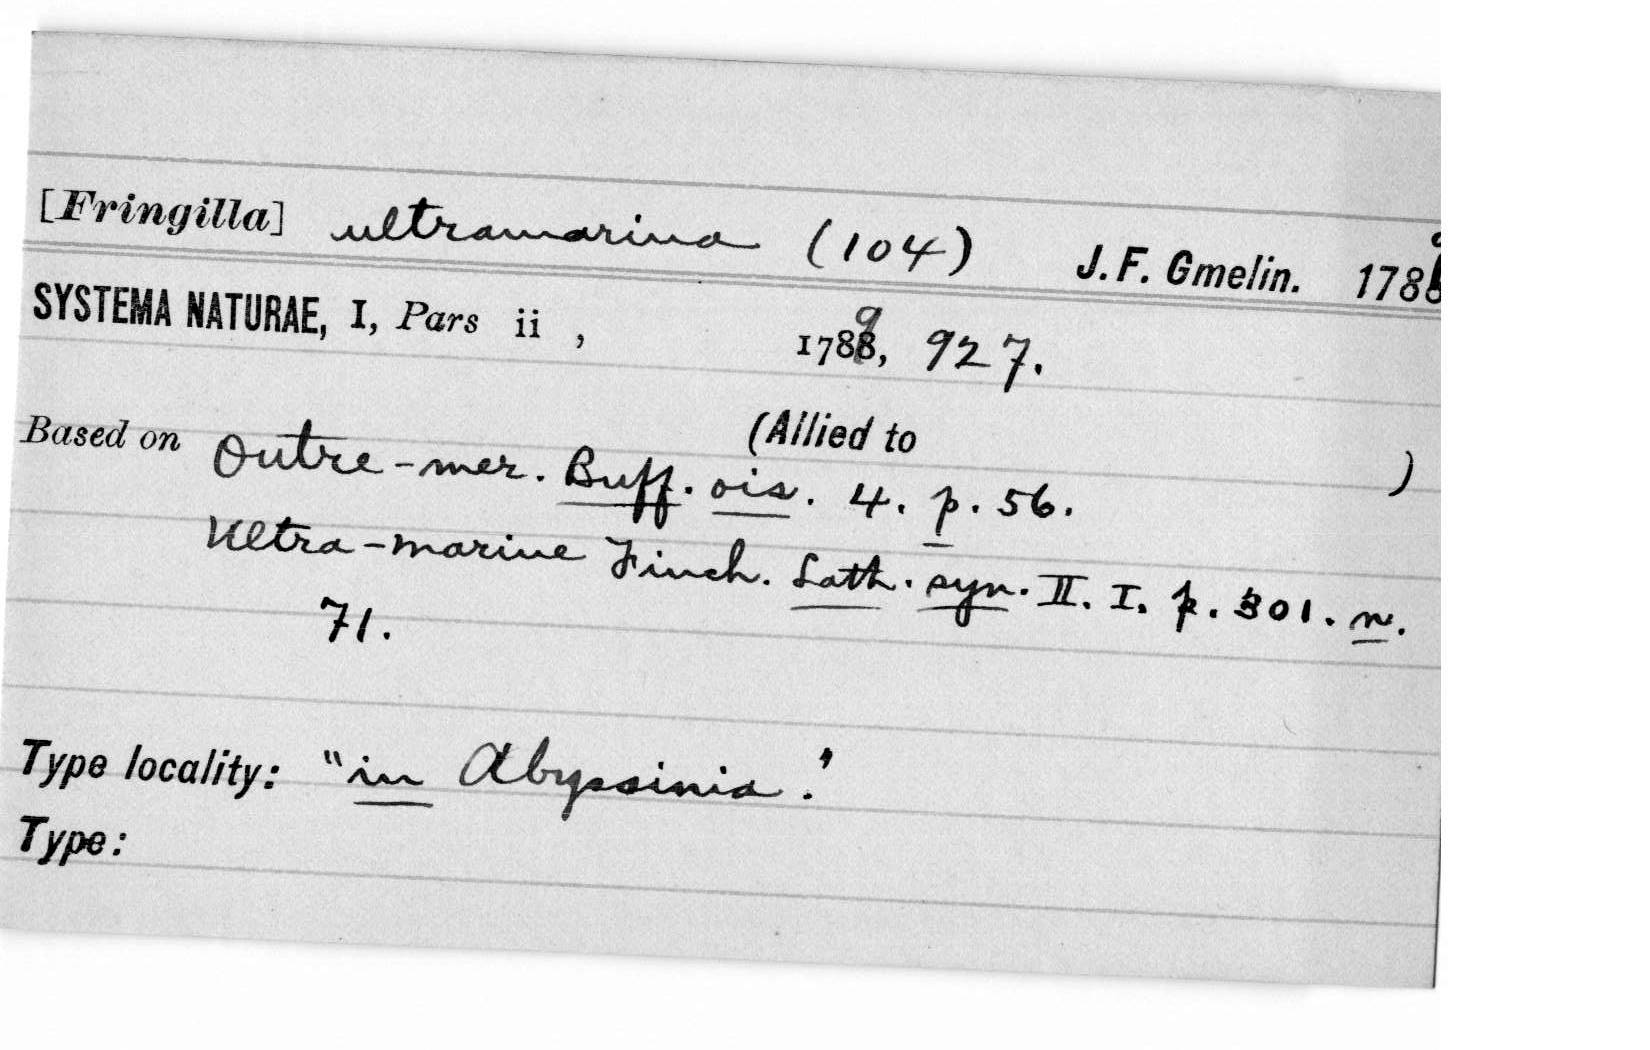 [Fringilla] ultramarina (104) J. F. Gmelin. 1789
SYSTEMA NATURAE, I, Pars ii , 1789, 927.
Based on (Allied to )
Outre-mer. Buff. ois. 4. p. 56.
Ultra-marine Finch. Lath. syn. II. I. p. 301. n.
71.
Type locality: "in Abyssinia."
Type: